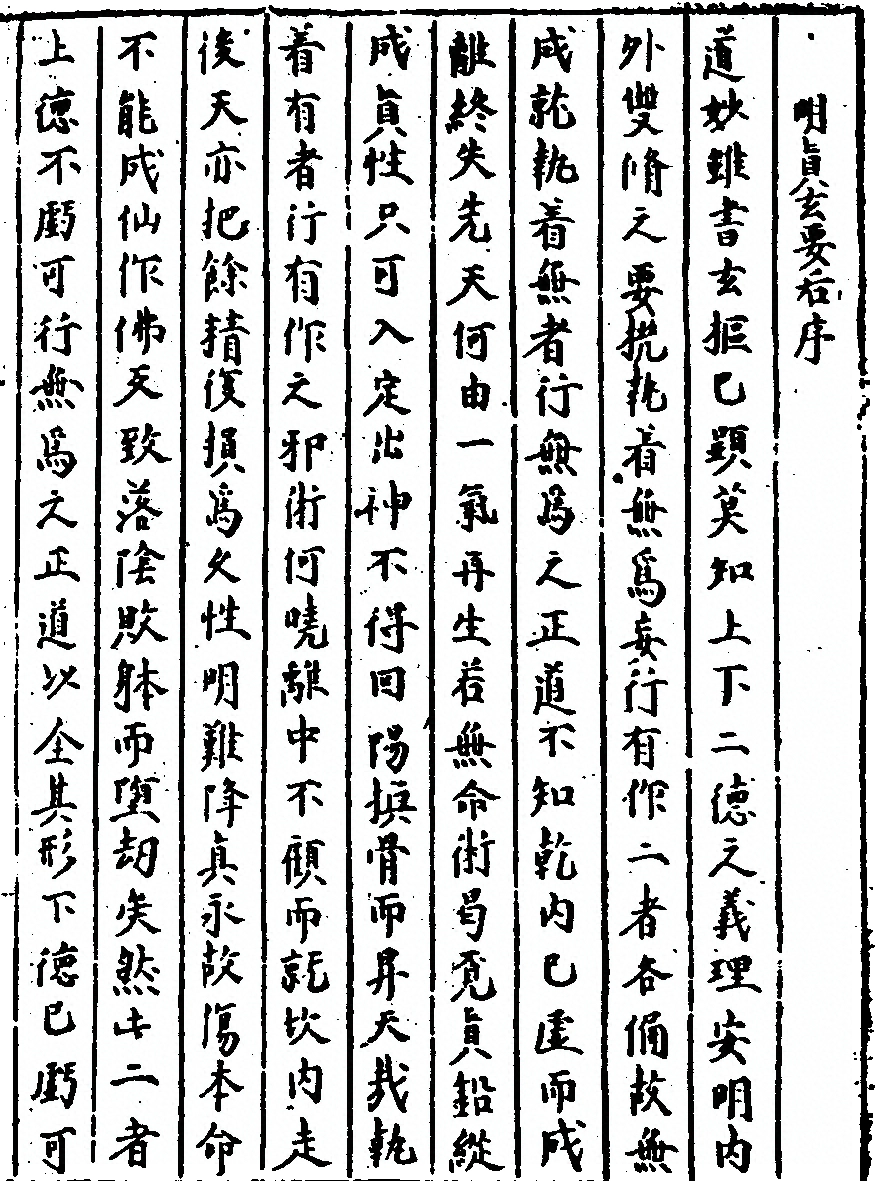 明眞玄要后序
道妙雖書玄摳已顕莫知上下二德之義理安明内
外雙脩之要挠執着無爲妄行有作二者各偏故無
成就執着無者行無爲之正道不知乾内已虛而成
離終失先天何由一氣再生若無命術曷覓眞鉛縱
成眞性只可入定出神不得回陽換骨而昇天哉執
着有者行有作之邪術何曉離中不顧而就坎内走
後天亦把餘精復損爲久性明難降真永故傷本命
不能成仙作佛天致落陰敗躰而墮刧矣然此二者
上德不虧可行無爲之正道以全其形下德已虧可